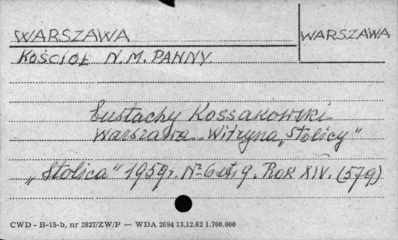 WARSZAWA WARSZAWA
KOŚCIOŁ N.M. PANNY
Eustachy Kossakowski
Warszawa Witryna „Stolicy”
„Stolica” 1959r. Nº 6 st. 9. Rok XIV. (579)
CWD - B-15-b, nr 2827/ZW/P — WDA 2694 13.12.62 1.700.000